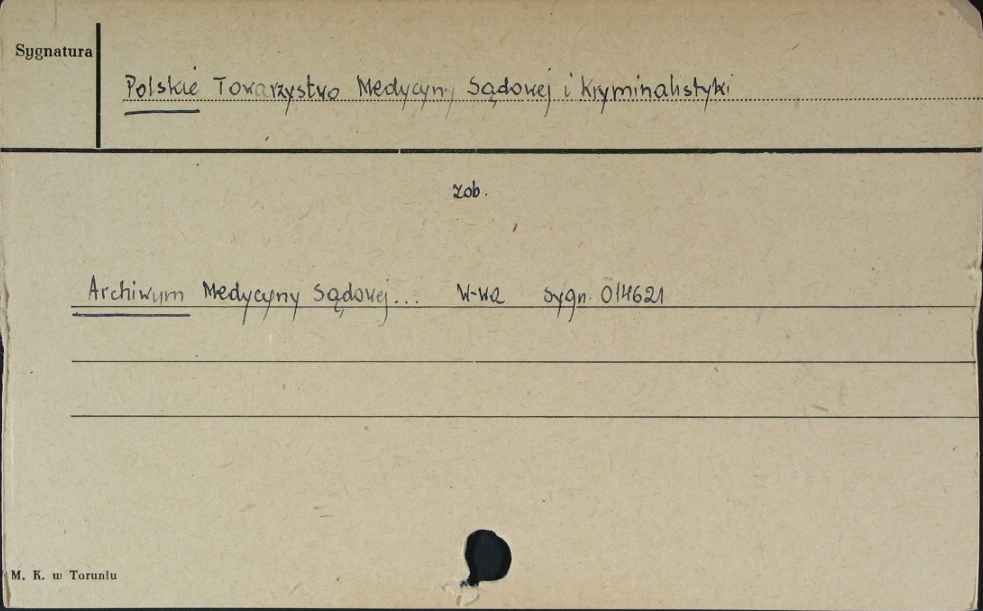 Sygnatura
Polskie Towarzystwo Medycyny Sądowej i Kryminalistyki
zob.
Archiwum Medycyny Sądowej... W-wa sygn. 014621
M. K. w Toruniu